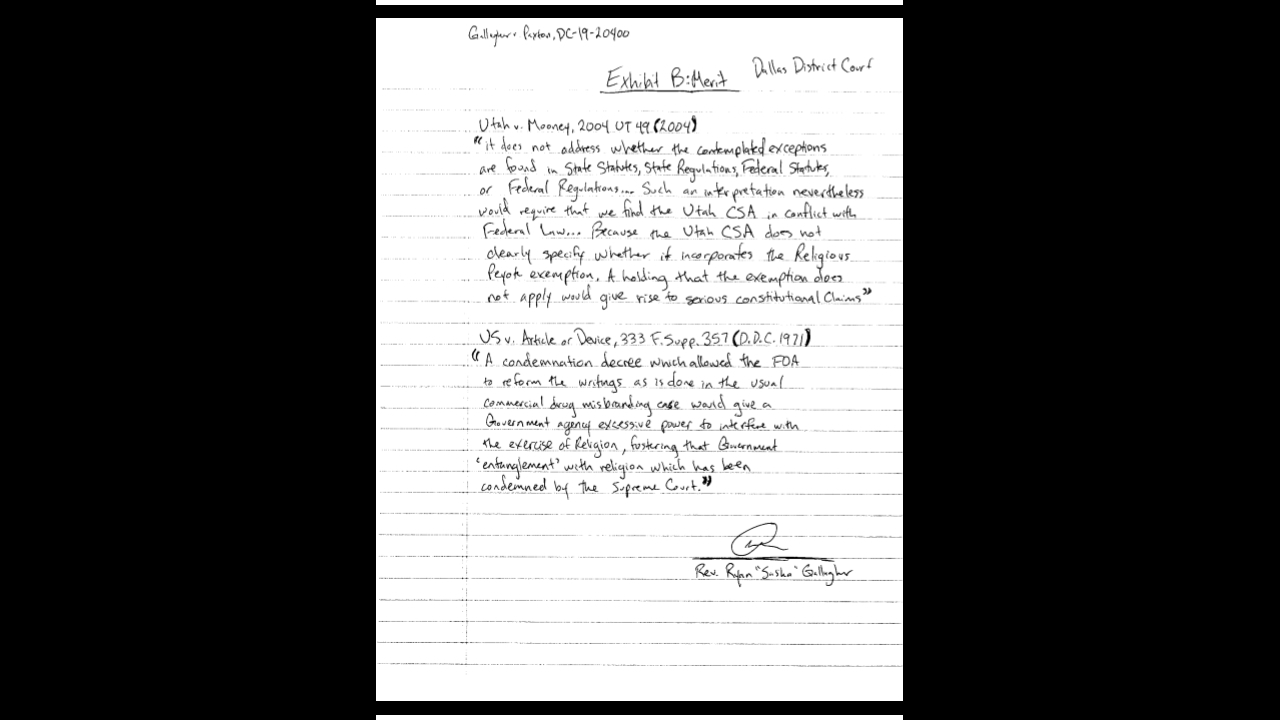 Gallagher v Paxton, DC-19-20400
Dallas District Court
Exhibit B: Merit
Utah v. Mooney, 2004 UT 49 (2004)
"it does not address whether the contemplated exceptions
are found in State Statutes, State Regulations, Federal Statutes,
or Federal Regulations.... Such an interpretation nevertheless
would require that we find the Utah CSA in conflict with
Federal Law... Because the Utah CSA does not
clearly specify whether it incorporates the Religious
Peyote exemption. A holding that the exemption does
not apply would give rise to serious constitutional Claims"
US v. Article or Device, 333 F. Supp. 357 (D.D.C. 1971)
"A condemnation decree which allowed the FDA
to reform the writings as is done in the usual
commercial drug misbranding case would give a
Government agency excessive power to interfere with
the exercise of Religion, fostering that Government
'entanglement' with religion which has been
condemned by the Supreme Court."
Rev. Ryan "Sasha" Gallagher